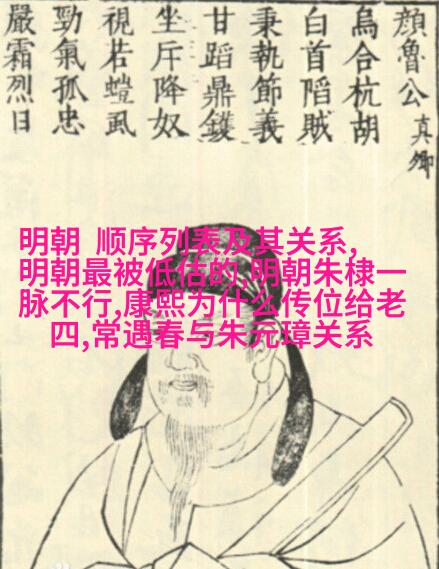 顏魯公 真卿
烏合杭胡
白首陷賊
秉執節義
甘蹈鼎鑊
坐斥降奴
視若螘虱
勁氣孤忠
嚴霜烈日
明朝 顺序列表及其关系,
明朝最被低估的,明朝朱棣一
脉不行,康熙为什么传位给老
四,常遇春与朱元璋关系